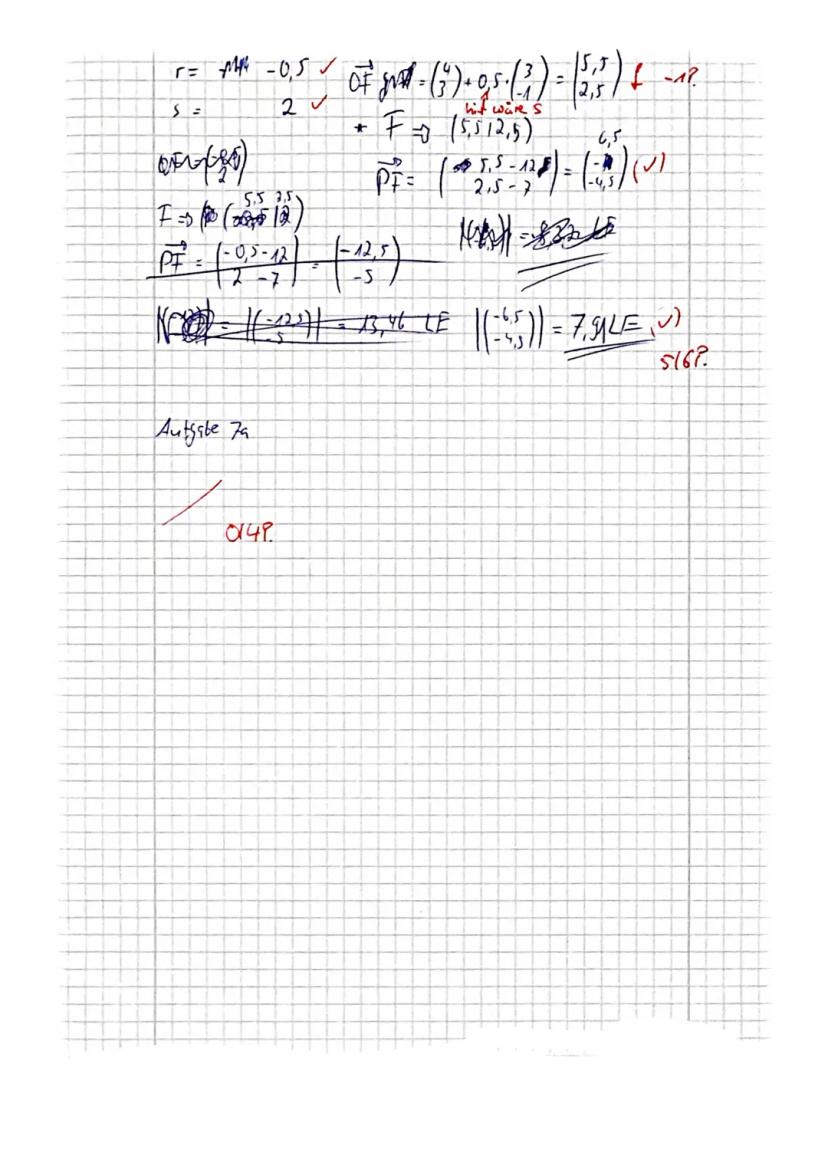 r = -0,5 ✓ →OF = (4 3) + 0,5 · (3 -1) = (5,5 2,5) f -1P.
s = 2 ✓ hier wäre s
* F ⇒ (5,5 | 2,5)
→PF = (5,5 - 12 2,5 - 7) = (-6,5 -4,5) (✓)
F ⇒ (5,5 | 2,5)
→PF = (-0,5 - 12 2 - 7) = (-12,5 -5)
= |(-12,5 -5)| = 13,46 LE |(-6,5 -4,5)| = 7,91 LE (✓)
5/6P.
Aufgabe 7a
0/4P.